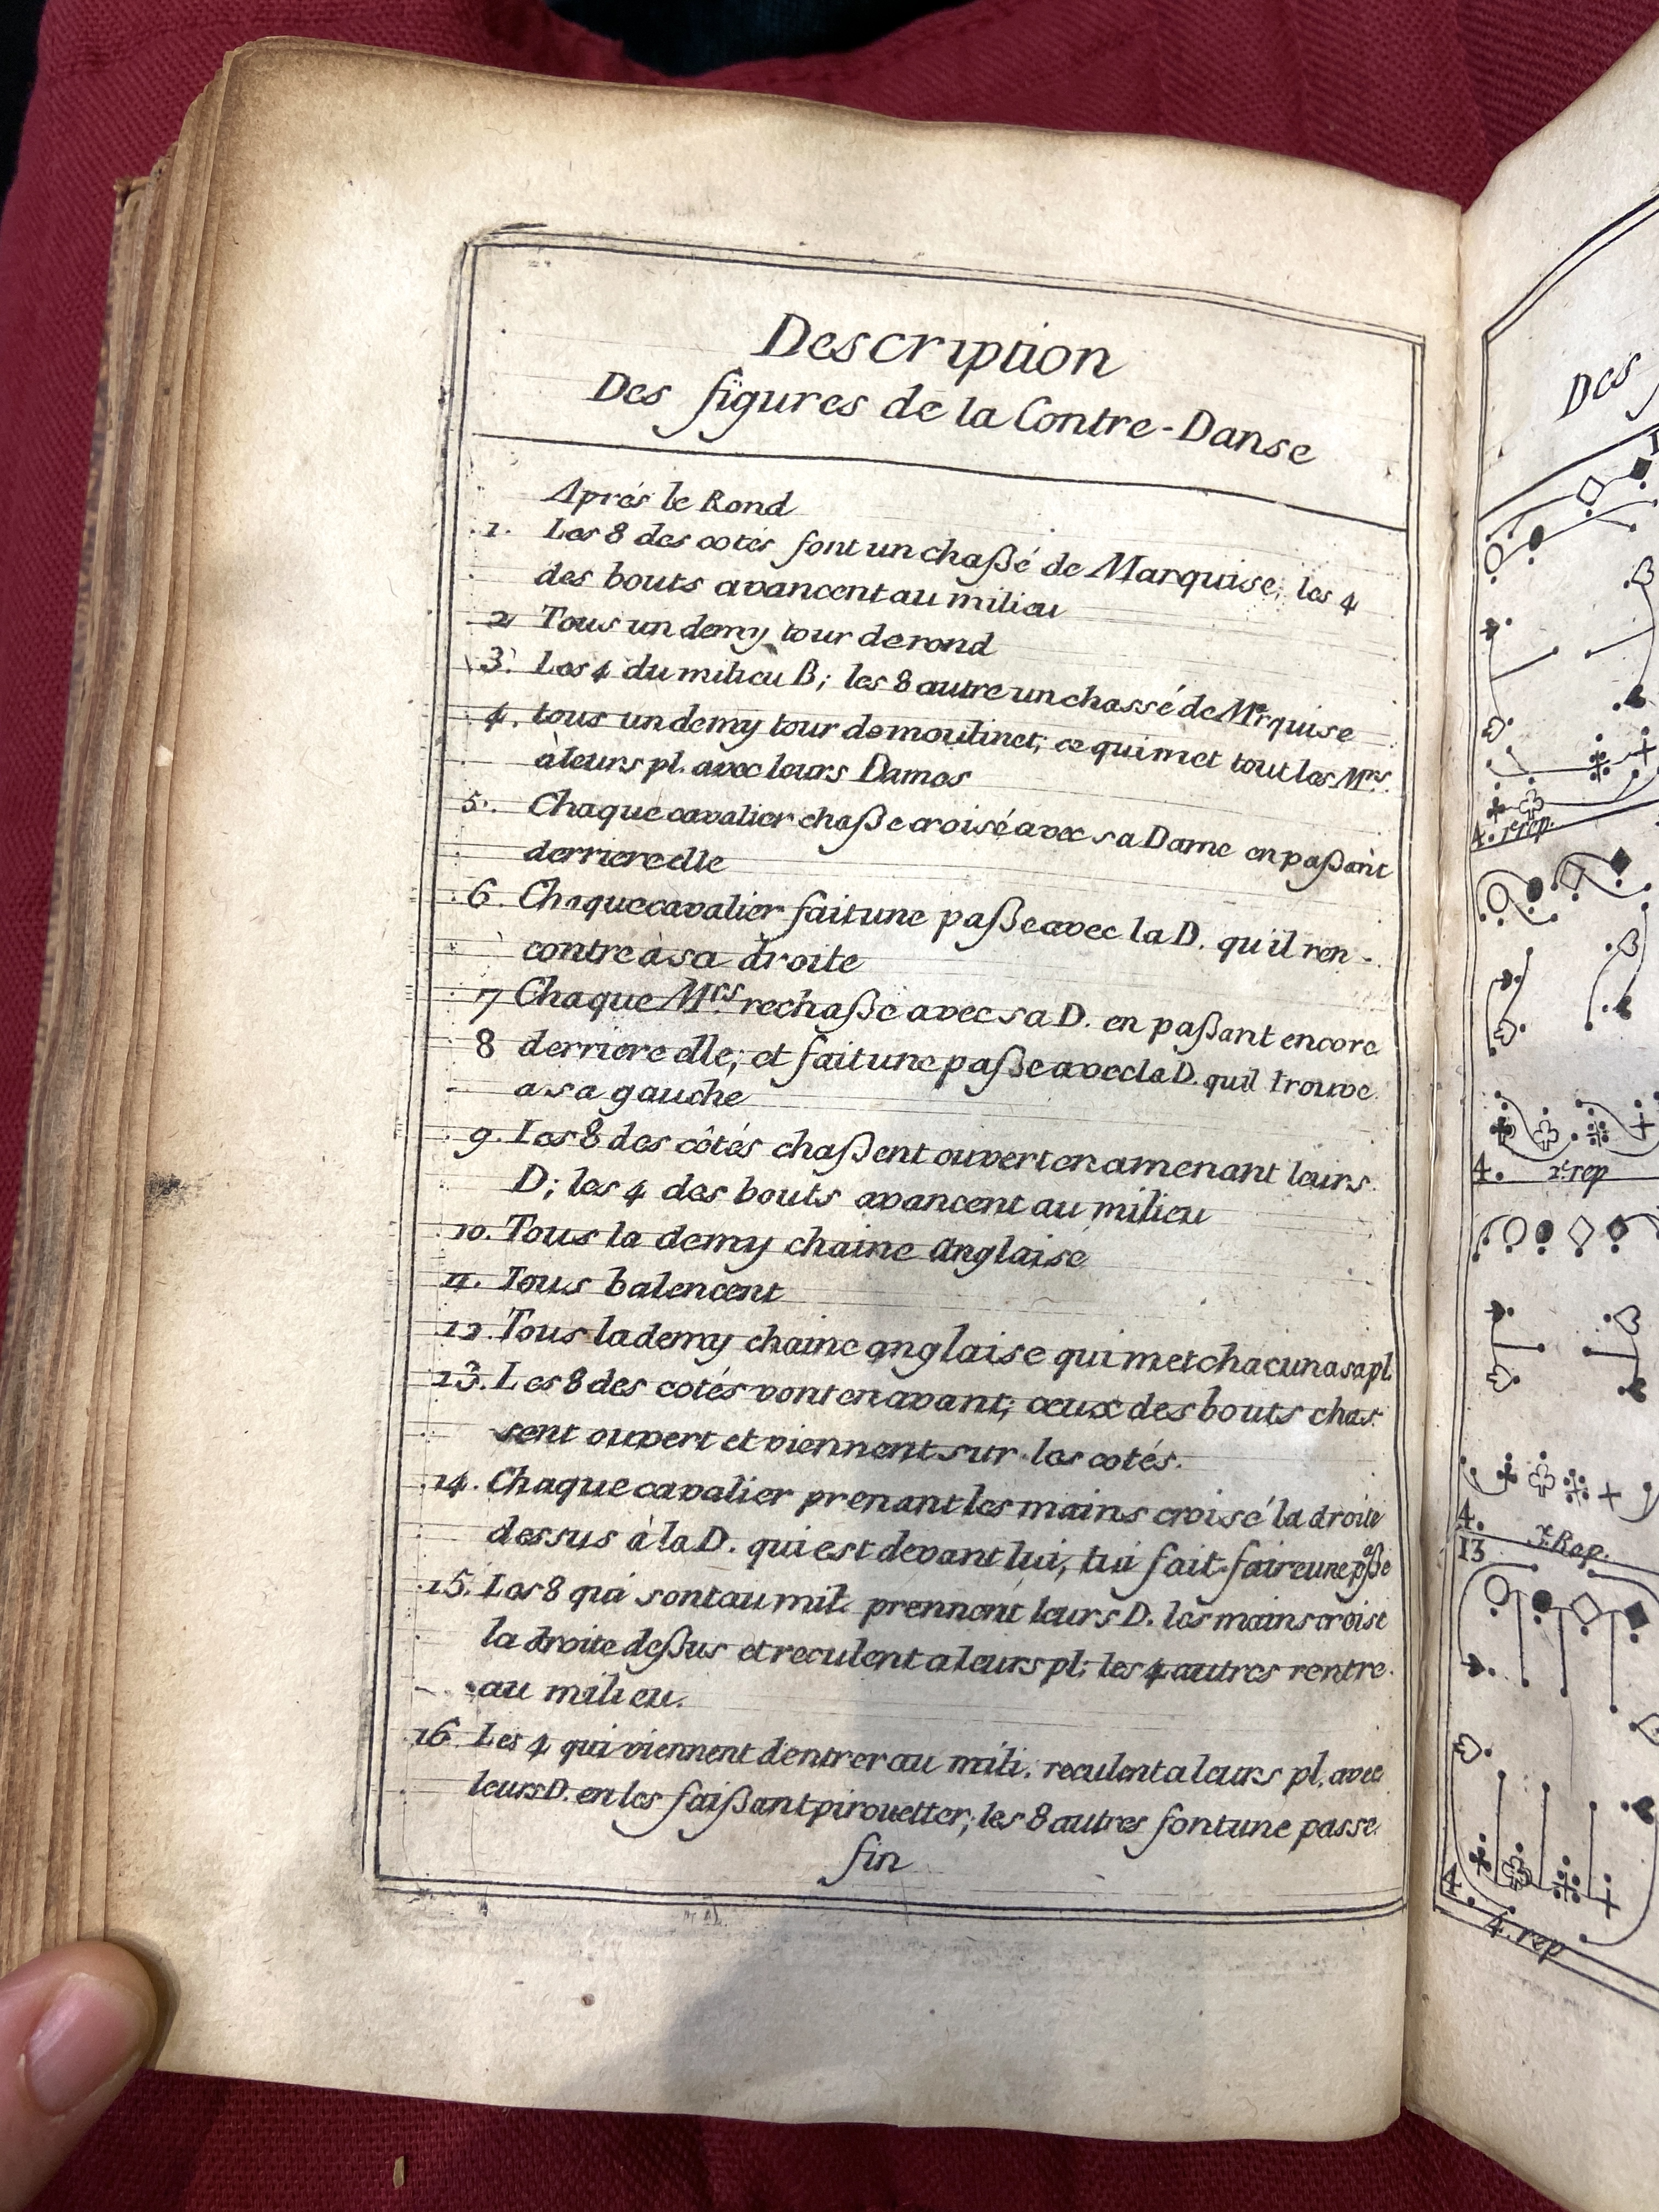 Description
Des figures de la Contre-Danse
Aprés le Rond
1. Les 8 des cotés font un chaßé de Marquise; les 4
des bouts avancent au milieu
2 Tous un demy tour de rond
3. Les 4 du milieu B; les 8 autre un chassé de Mrquise
4. tous un demy tour de moulinet; ce qui met tout les Mrs.
à leurs pl. avec leurs Dames
5. Chaque cavalier chaße croisé avec sa Dame en paßant
derriere elle
6 Chaque cavalier fait une paße avec la D. qu'il ren-
contre à sa droite
7 Chaque Mrs. rechaße avec sa D. en paßant encore
8 derriere elle; et fait une paße avec la D. quil trouve
a sa gauche
9. Les 8 des côtés chaßent ouvert en amenant leurs
D; les 4 des bouts avancent au milieu
10. Tous la demy chaine Anglaise
11. Tous balencent
12. Tous la demy chaine anglaise qui met chacun a sa pl
13. Les 8 des cotés vont en avant; ceux des bouts chas
sent ouvert et viennent sur les cotés.
14. Chaque cavalier prenant les mains croisé la droite
dessus à la D. qui est devant lui, lui fait faire une paße
15. Les 8 qui sont au mil. prennent leurs D. les mains croisé
la droite deßus et reculent a leurs pl; les 4 autres rentre
au milieu.
16 Les 4 qui viennent d'entrer au mili. reculent a leurs pl. avec
leurs D. en les faißant pirouetter; les 8 autres font une passe
fin
Des
4. 1e rep.
4. 2e rep
4. 3e Rep.
13
4. 4. rep